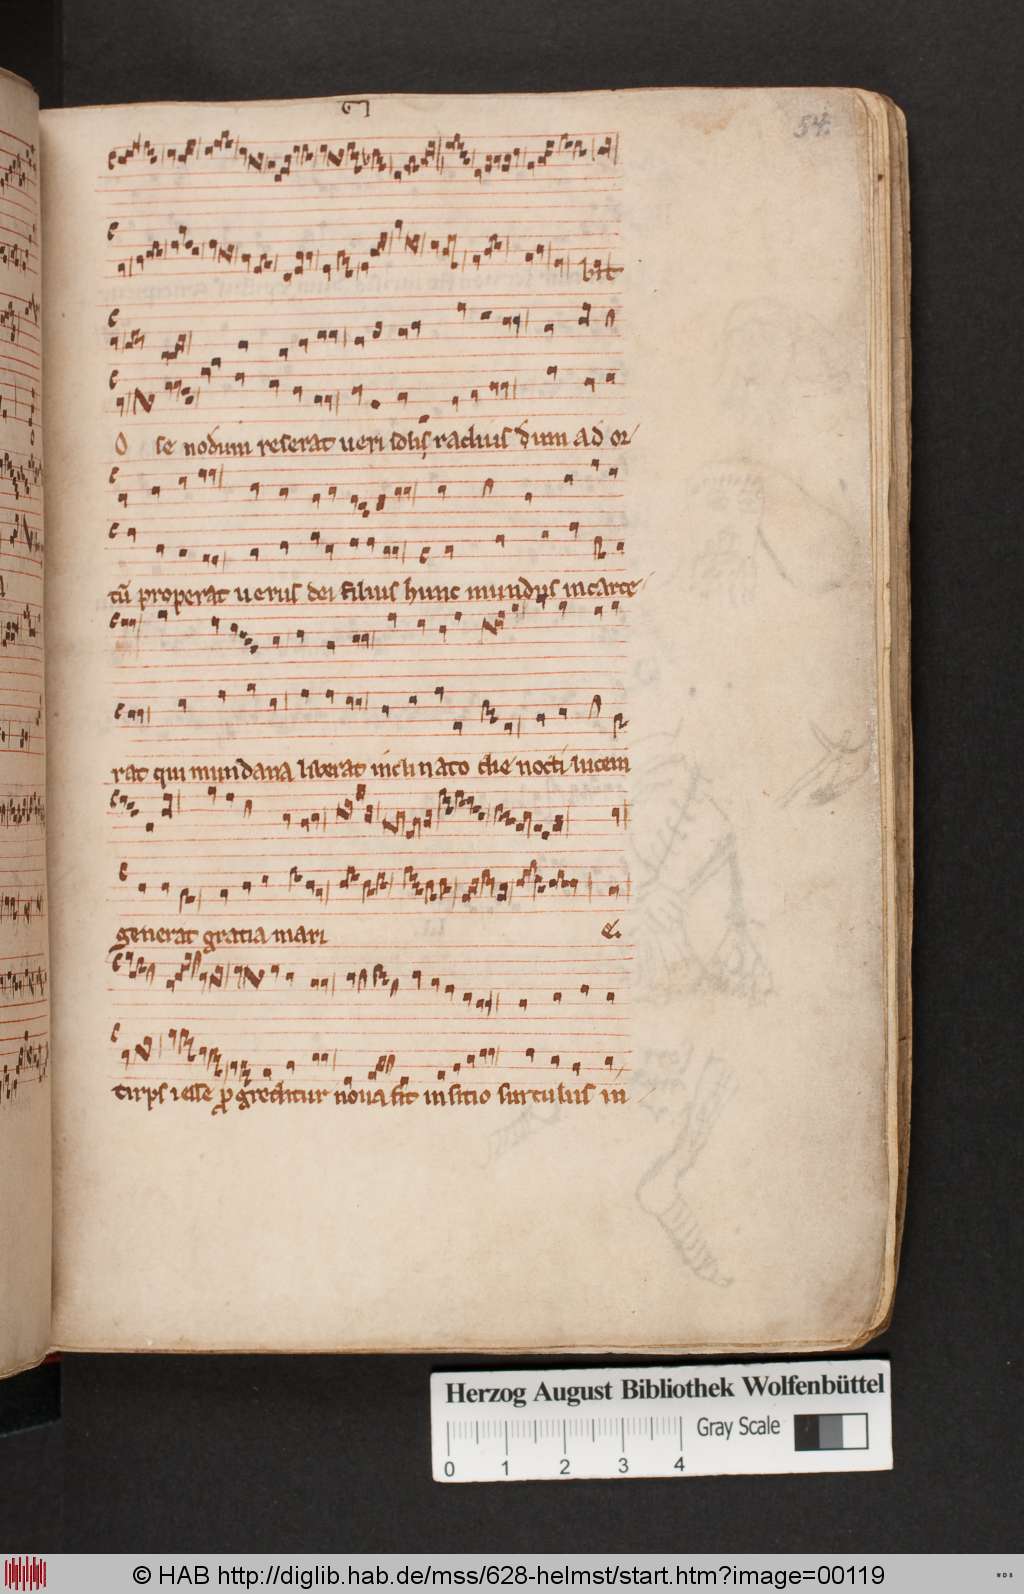 54.
bit
O se nodum reserat ueri solis radius dum ad or
tū properat uerus dei filius hunc mundus incarce
rat qui mundana liberat inclinato die nocti lucem
generat gratia mari e.
tirps iesse ꝓgreditur noua fit insitio surculus in
Herzog August Bibliothek Wolfenbüttel
Gray Scale
0 1 2 3 4
© HAB http://diglib.hab.de/mss/628-helmst/start.htm?image=00119